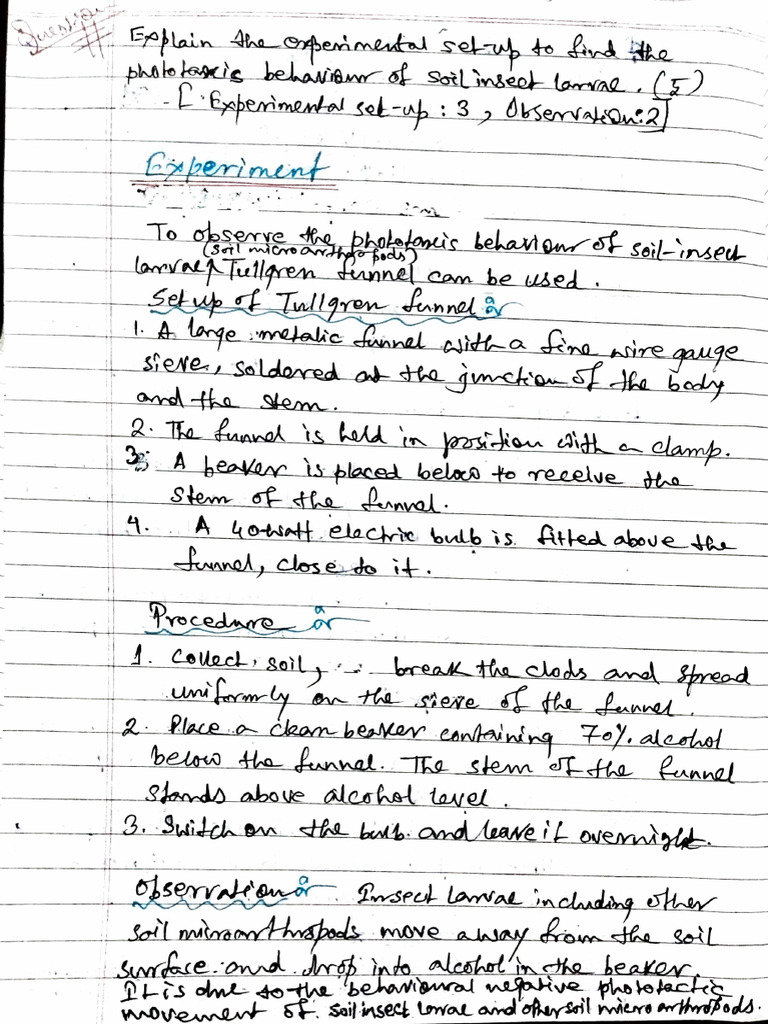 Question
Explain the experimental set-up to find the
phototaxis behaviour of soil insect larvae. (5)
[Experimental set-up : 3, Observation: 2]
Experiment
To observe the phototaxis behaviour of soil-insect
(soil microarthropods)
larvae, Tullgren funnel can be used.
Set up of Tullgren funnel :-
1. A large metalic funnel with a fine wire gauge
sieve, soldered at the junction of the body
and the stem.
2. The funnel is held in position with a clamp.
3. A beaker is placed below to receive the
stem of the funnel.
4. A 40-watt electric bulb is fitted above the
funnel, close to it.
Procedure :-
1. Collect soil, break the clods and spread
uniformly on the sieve of the funnel.
2. Place a clean beaker containing 70% alcohol
below the funnel. The stem of the funnel
stands above alcohol level.
3. Switch on the bulb and leave it overnight.
Observation :- Insect larvae including other
soil microarthropods move away from the soil
surface and drop into alcohol in the beaker.
It is due to the behavioural negative phototactic
movement of soil insect larvae and other soil micro arthropods.